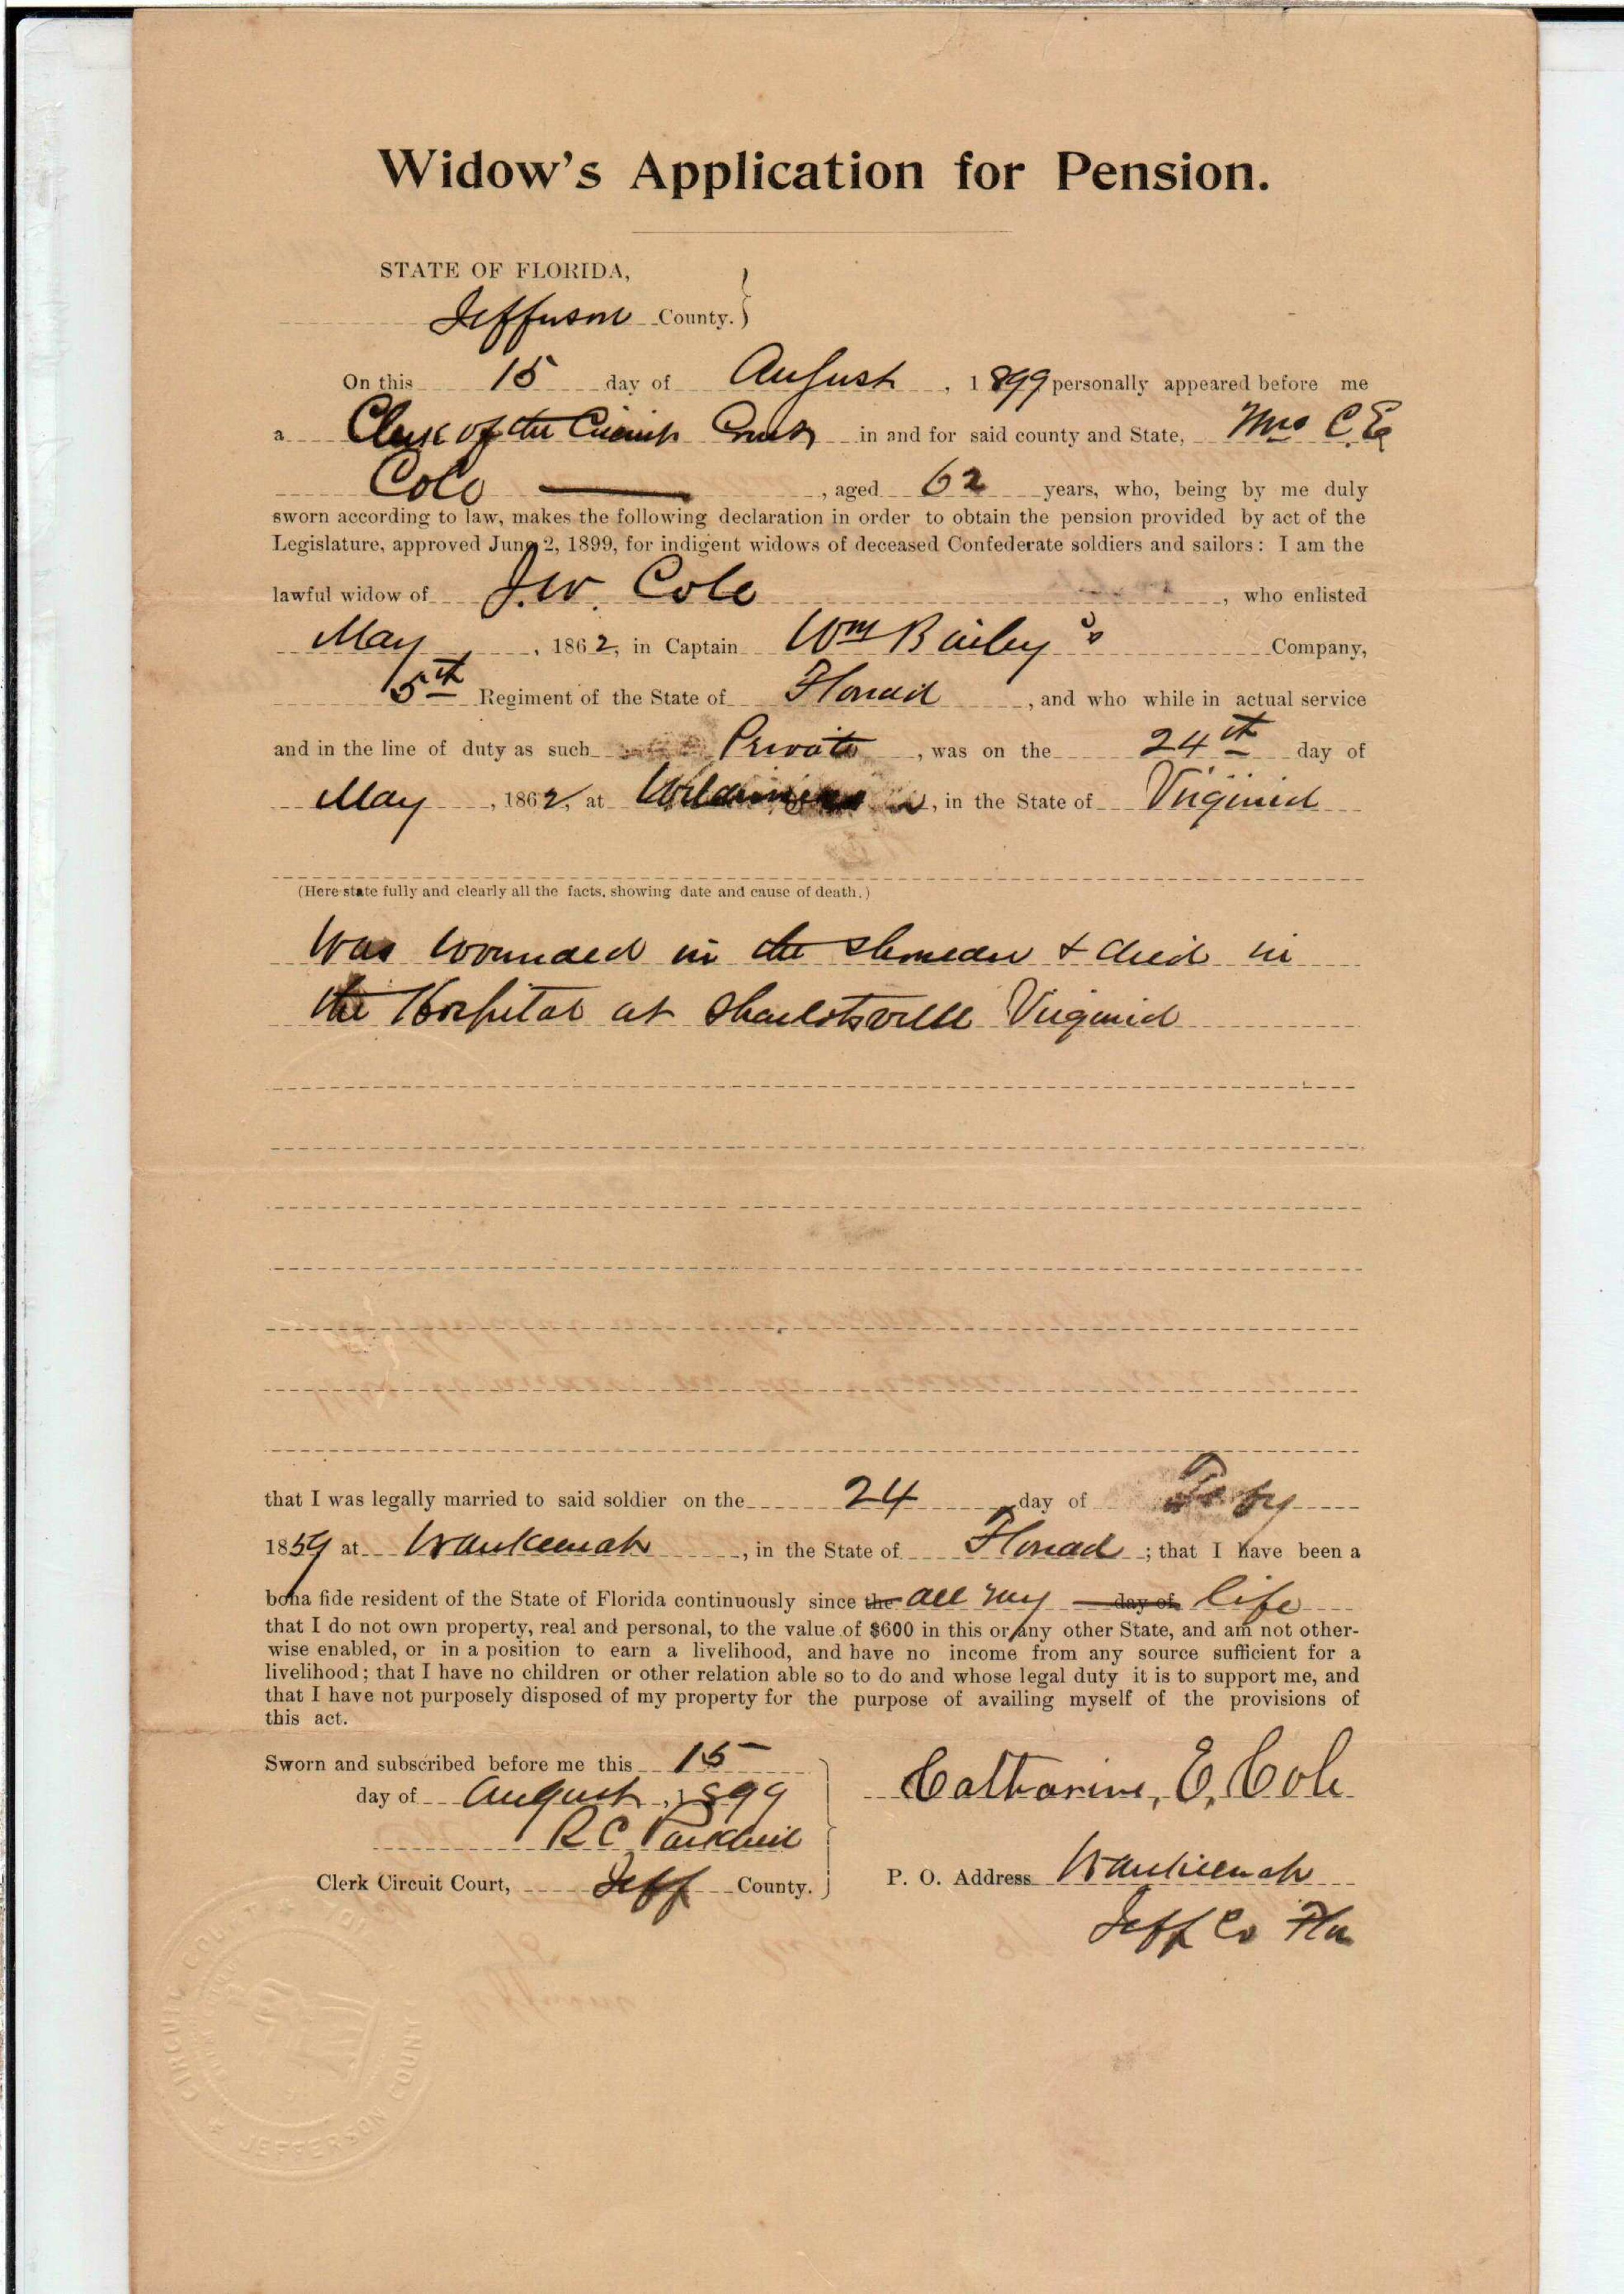 Widow's Application for Pension.
STATE OF FLORIDA,
Jefferson County.
On this 15 day of August, 1899 personally appeared before me
a Clerk of the Circuit Court in and for said county and State, Mrs C. E.
Cole, aged 62 years, who, being by me duly
sworn according to law, makes the following declaration in order to obtain the pension provided by act of the
Legislature, approved June 2, 1899, for indigent widows of deceased Confederate soldiers and sailors: I am the
lawful widow of J. W. Cole, who enlisted
May, 1862, in Captain Wm Bailey's Company,
5th Regiment of the State of Florida, and who while in actual service
and in the line of duty as such Private, was on the 24th day of
May, 1862, at Wilderness, in the State of Virginia
(Here state fully and clearly all the facts, showing date and cause of death.)
Was wounded in the shoulder & died in
the Hospital at Sharlotsville Virginia
that I was legally married to said soldier on the 24 day of Feby
1859 at Waukeenah, in the State of Florida; that I have been a
bona fide resident of the State of Florida continuously since the all my day of life
that I do not own property, real and personal, to the value of $600 in this or any other State, and am not other-
wise enabled, or in a position to earn a livelihood, and have no income from any source sufficient for a
livelihood; that I have no children or other relation able so to do and whose legal duty it is to support me, and
that I have not purposely disposed of my property for the purpose of availing myself of the provisions of
this act.
Sworn and subscribed before me this 15
day of August, 1899
R C Parkhill
Clerk Circuit Court, Jeff County.
Catharine, E, Cole
P. O. Address Waukeenah
Jeff Co Fla
CIRCUIT COURT
JEFFERSON COUNTY